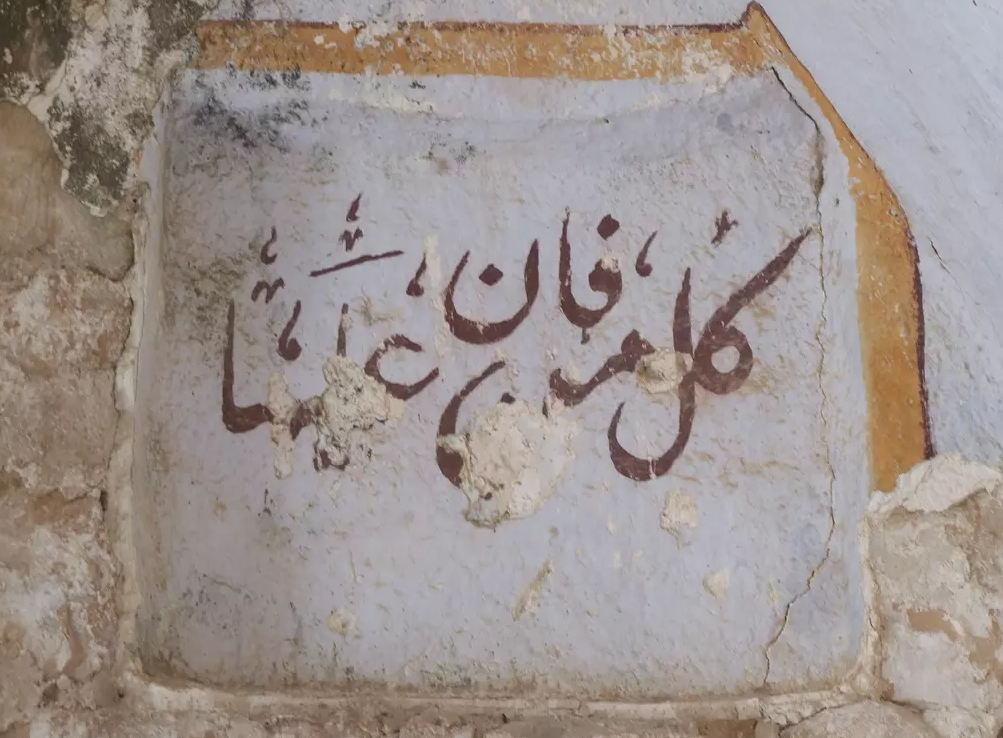 كل من عليها فان